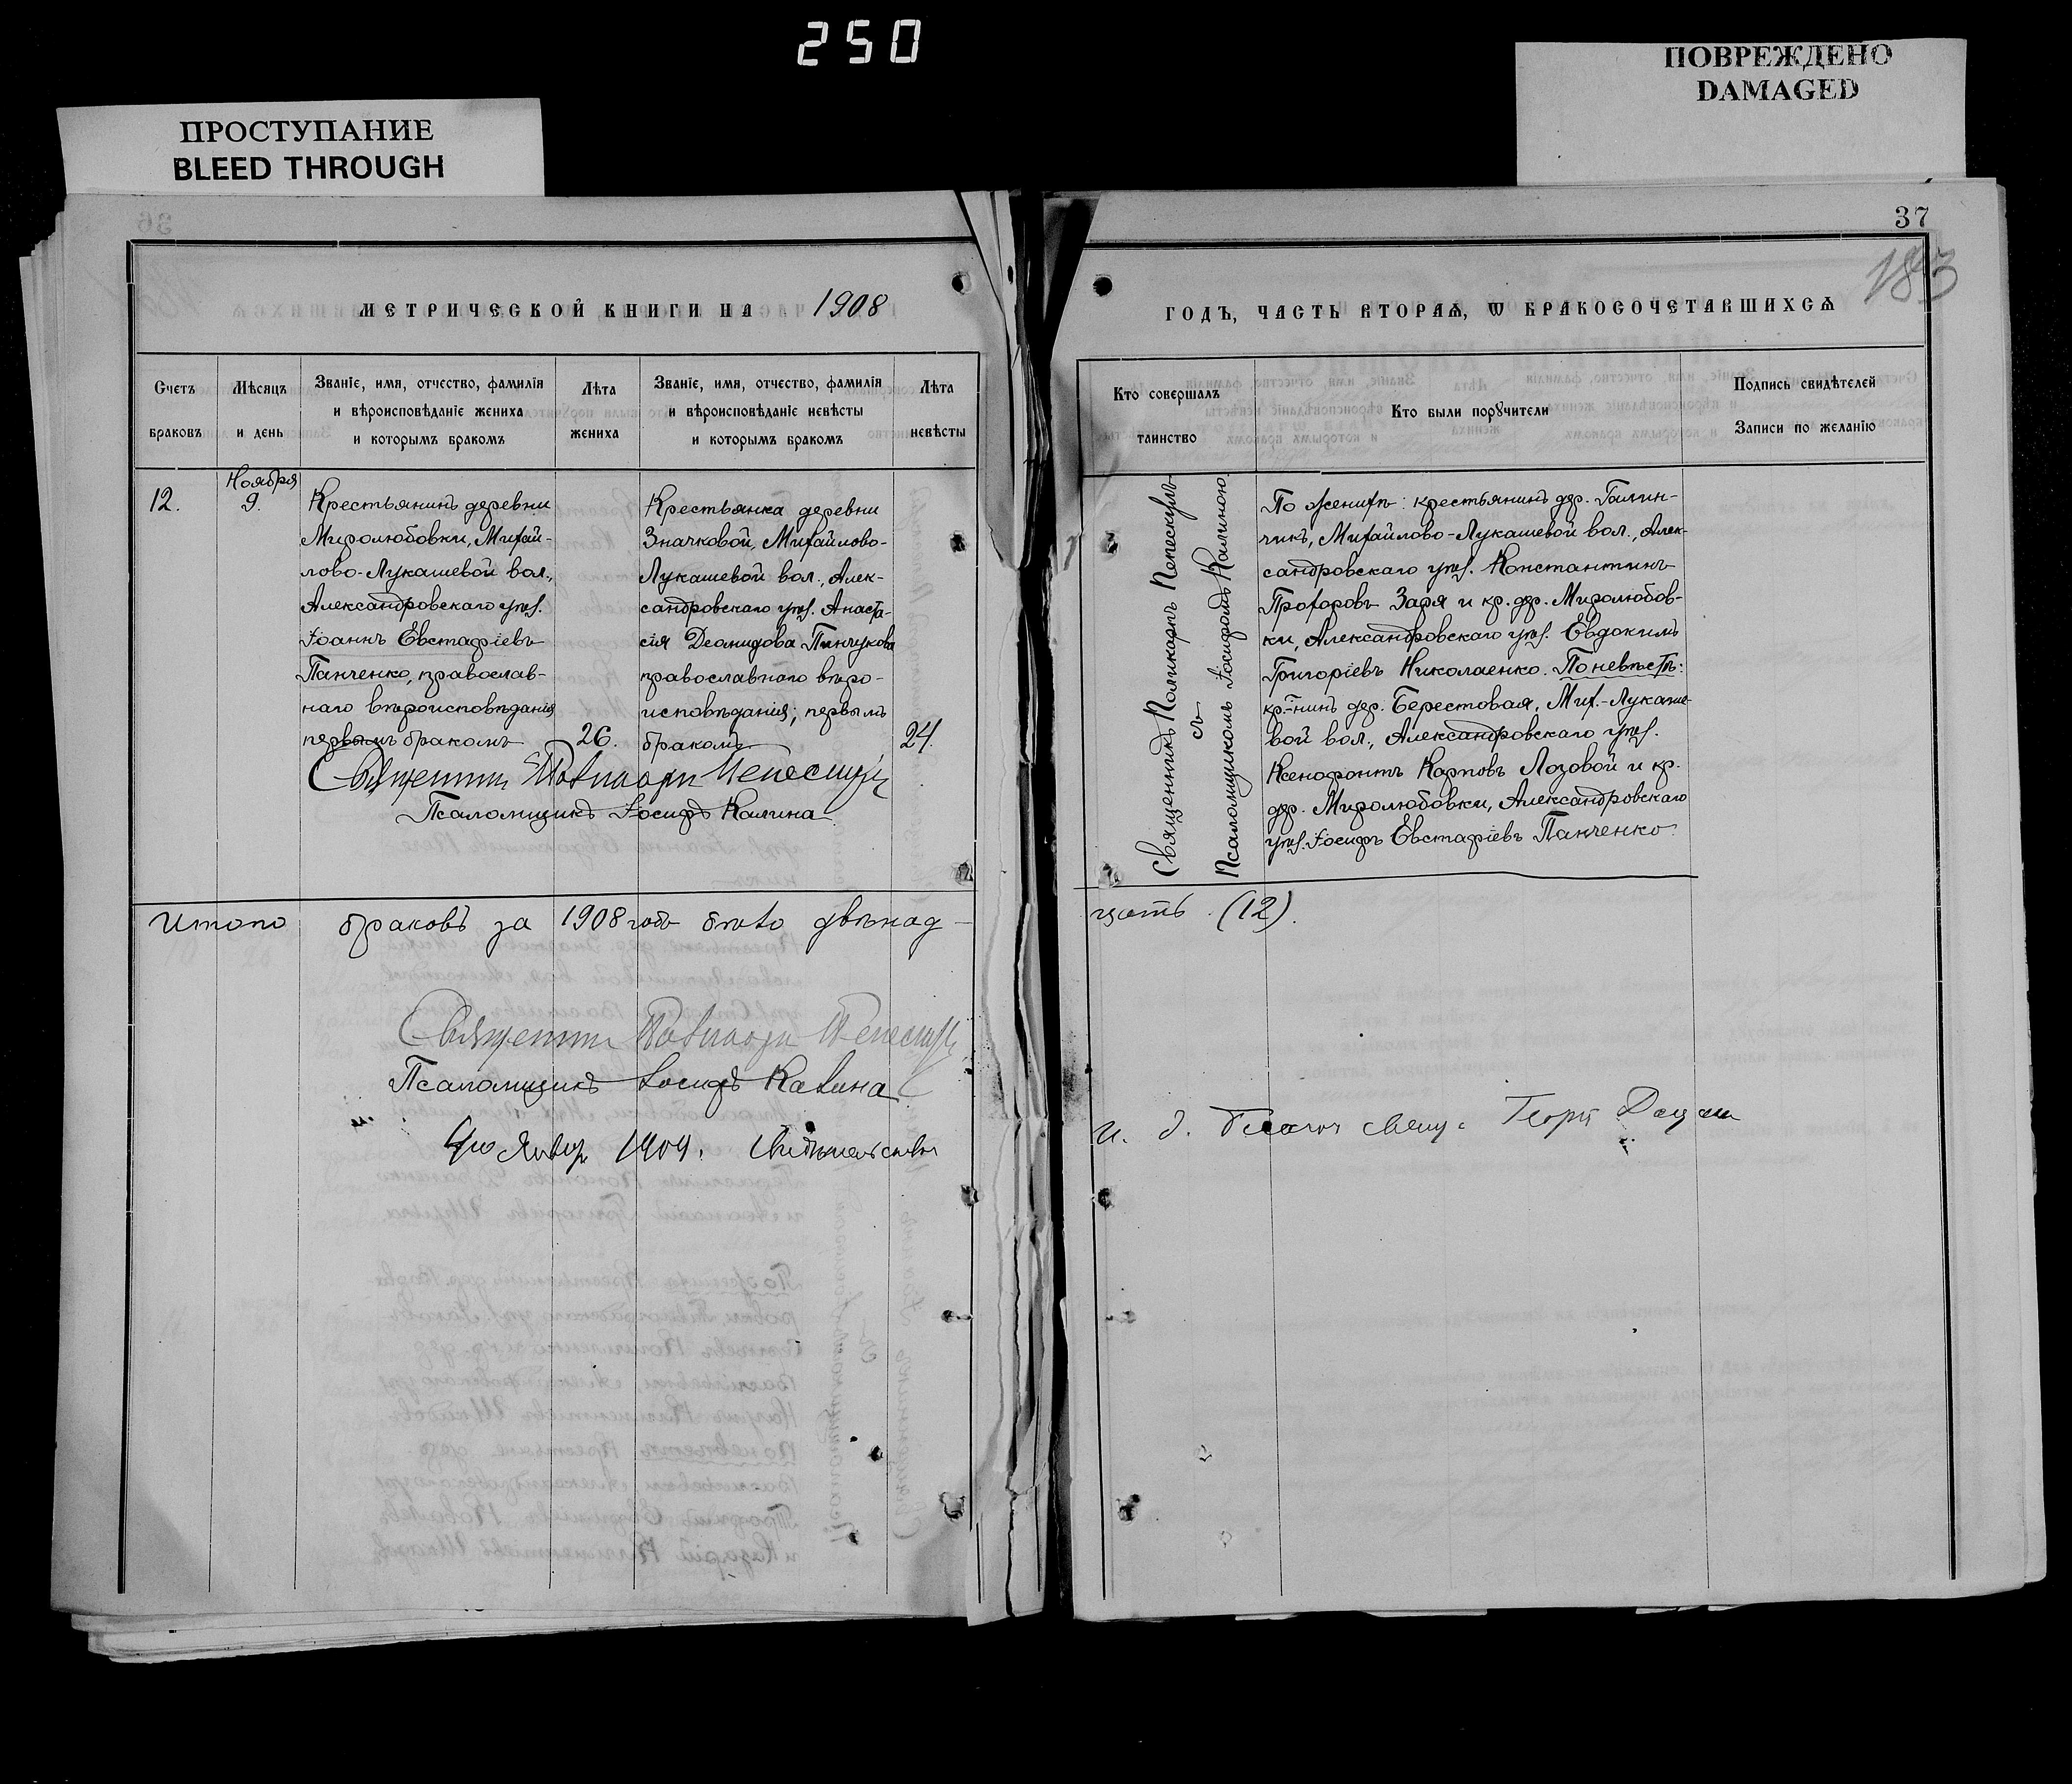 250
ПРОСТУПАНИЕ
BLEED THROUGH
ПОВРЕЖДЕНО
DAMAGED
37
183
МЕТРИЧЕСКОЙ КНИГИ НА 1908
ГОДЪ, ЧАСТЬ ВТОРАѦ, Ѡ БРАКОСОЧЕТАВШИХСѦ
Счетъ
браковъ
Мѣсяцъ
и день
Званіе, имя, отчество, фамилія
и вѣроисповѣданіе жениха
и которымъ бракомъ
Лѣта
жениха
Званіе, имя, отчество, фамилія
и вѣроисповѣданіе невѣсты
и которымъ бракомъ
Лѣта
невѣсты
Кто совершалъ
таинство
Кто были порꙋчители
Подпись свидѣтелей
Записи по желанію
12.
Ноября
9.
Крестьянинъ деревни
Миролюбовки, Михай-
лово-Лукашевой вол.,
Александровскаго уѣз.
Іоаннъ Евстафіевъ
Панченко, православ-
наго вѣроисповѣданія
первымъ бракомъ
26.
Крестьянка деревни
Значковой, Михайлово-
Лукашевой вол., Алек-
сандровскаго уѣз. Анаста-
сія Деомидова Пинчукова
православнаго вѣро-
исповѣданія; первымъ
бракомъ
24.
Священникъ Поликарпъ Пепескулъ
съ
Псаломщикомъ Іосифомъ Калиною
По женихѣ: крестьянинъ дер.
чикъ, Михайлово-Лукашевой вол., Алек-
сандровскаго уѣз. Константинъ
Прохоровъ Заря и кр. дер. Миролюбов-
ки, Александровскаго уѣз. Евдокимъ
Григоріевъ Николаенко. По невѣстѣ:
кр-нинъ дер. Берестовая, Мих.-Лукаше-
вой вол., Александровскаго уѣз.
Ксенофонтъ Карповъ Лозовой и кр.
дер. Миролюбовки, Александровскаго
уѣз. Іосифъ Евстафіевъ Панченко.
Священникъ Поликарпъ Пепескулъ
Псаломщикъ Іосифъ Калина
Итого браковъ за 1908 годъ было двѣнад-
цать (12).
Священникъ Поликарпъ Пепескулъ
Псаломщикъ Іосифъ Калина
Январ 1909.
и. д.